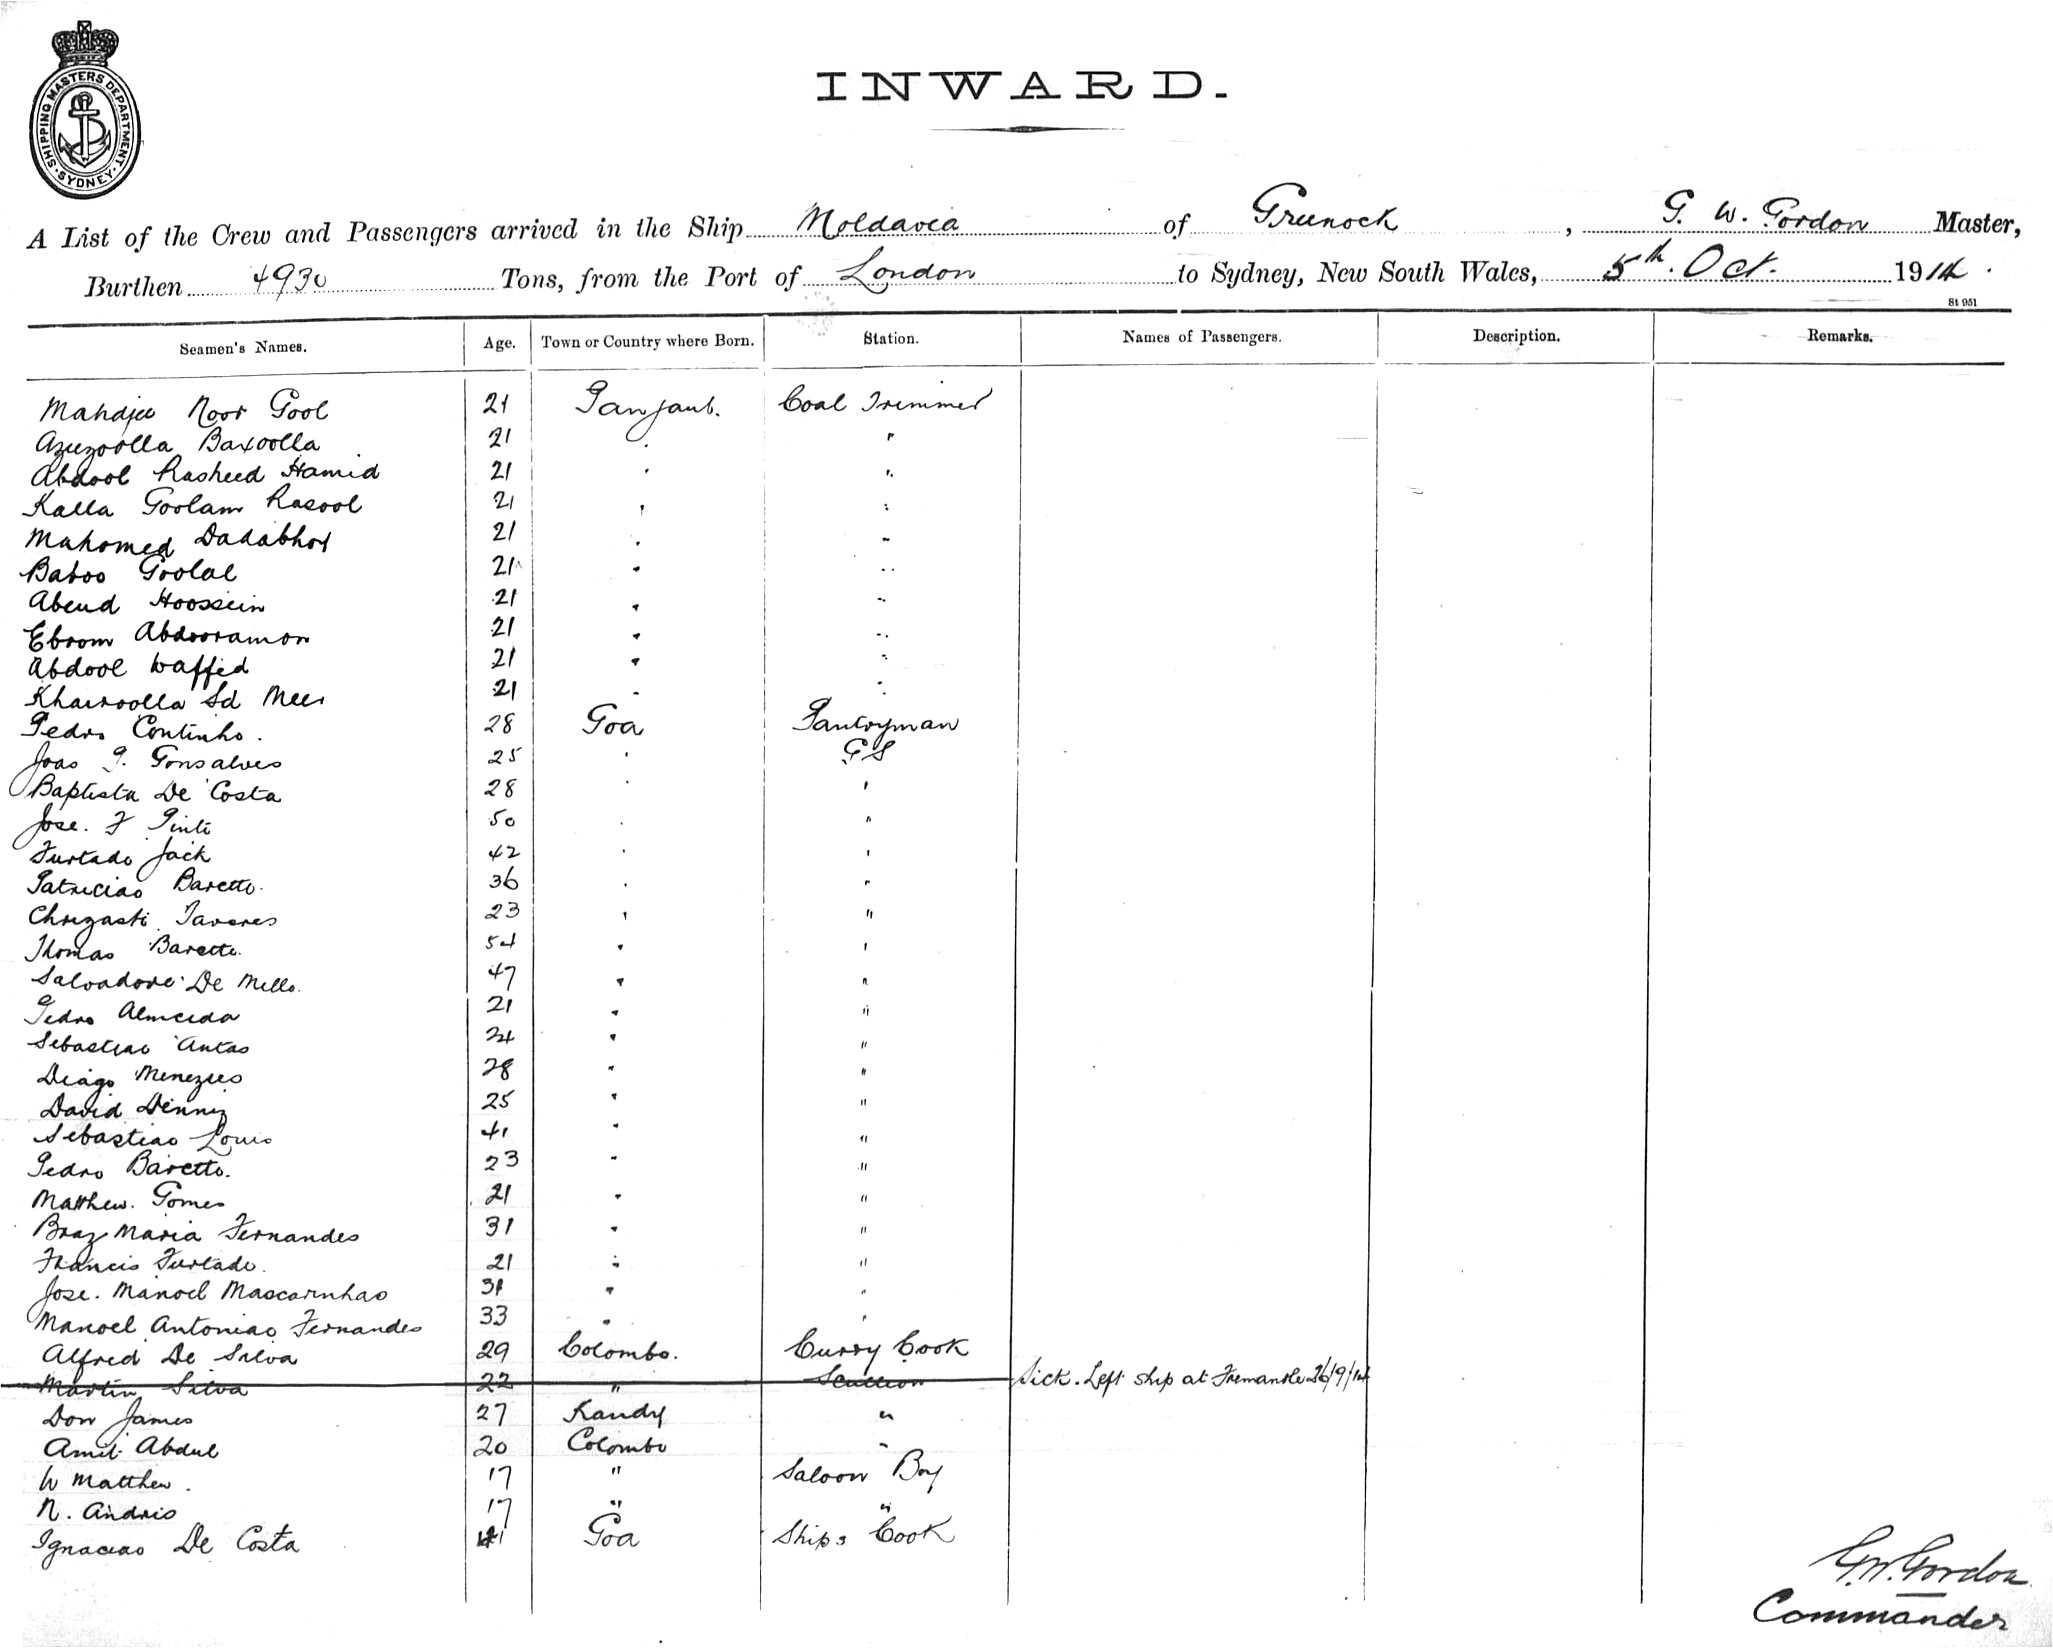 SHIPPING MASTERS DEPARTMENT
SYDNEY
INWARD.
A List of the Crew and Passengers arrived in the Ship Moldavia of Greenock, G. W. Gordon Master,
Burthen 4930 Tons, from the Port of London to Sydney, New South Wales, 5th. Oct. 1914.
St 951
Seamen's Names. Age. Town or Country where Born. Station. Names of Passengers. Description. Remarks.
Mahdjee Noor Gool 21 Panjaub. Coal Trimmer
Azuzoolla Baxoolla 21 " "
Abdool Rasheed Hamid 21 " "
Kalla Goolam Rasool 21 " "
Mahomed Dadabhoy 21 " "
Baboo Goolal 21 " "
Abeud Hoossein 21 " "
Ebrom Abdooramon 21 " "
Abdool Waffed 21 " "
Khairoolla Sd Meer 21 " "
Pedro Continho. 28 Goa Pantryman
Joao P. Gonsalves 25 " GS
Baptista De Costa 28 " "
Jose. F Pinto 50 " "
Furtado Jack 42 " "
Patriciao Baretto. 36 " "
Tavares 23 " "
Thomas Baretto. 54 " "
Salvadore De Mello. 47 " "
Pedro Almeida 21 " "
Sebastiao Antao 24 " "
Diago Menezies 28 " "
David Denniz 25 " "
Sebastiao Louis 41 " "
Pedro Baretto. 23 " "
Matthew. Gomes 21 " "
Braz Maria Fernandes 31 " "
Francis Furtado. 21 " "
Jose. Manoel Mascarnhao 31 " "
Manoel Antoniao Fernandes 33 " "
Alfred De Silva 29 Colombo. Curry Cook
Martin Silva 22 " Scullion Sick. Left ship at Fremantle 26/9/14
Don James 27 Kandy "
Amit Abdul 20 Colombo "
W Matthew. 17 " Saloon Boy
N. Andris 17 " "
Ignaciao De Costa 41 Goa Ships Cook
G.W. Gordon
Commander